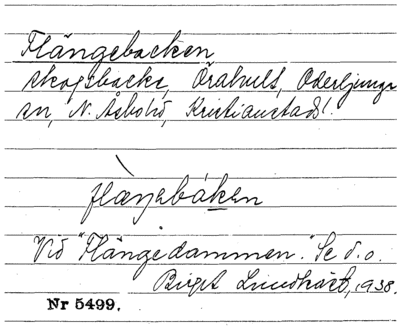 Flängebacken
skogsbacke, Örahult, Oderljunga
sn, N. Åsbo hd, Kristianstads l.
flæŋebáken
Vid "Flängedammen." Se d. o.
Birgit Lundkvist, 1938.
Nr 5499.